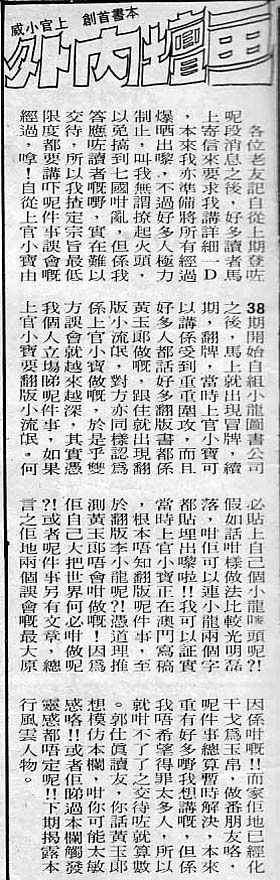 本書首創 上官小威
画壇內外
各位老友記自從上期登咗
呢段消息之後，好多讀者馬
上寄信來要求我講詳細一D
，本來我亦準備將所有經過
爆晒出嚟，不過好多人極力
制止，叫我無謂撩起火頭，
以免搞到七國咁亂，但係我
答應咗讀者嘅嘢，實在難以
交待，所以我揸定宗旨最低
限度都要講吓呢件事誤會嘅
經過，嗱！自從上官小寶由
38期開始自組小龍圖書公司
之後，馬上就出現冒牌，續
期，翻牌，當時上官小寶可
以講係受到重重圍攻，而且
好多人都話好多翻版書都係
黃玉郎做嘅，跟住就出現翻
版小流氓，對方亦同樣認爲
係上官小寶做嘅，於是乎雙
方誤會就越來越深，其實憑
我個人立場睇呢件事，如果
上官小寶要翻版小流氓。何
必貼上自己個小龍嘜頭呢?!
假如話咁樣做法比較光明磊
落，咁佢可以連小龍兩個字
都貼埋出嚟啦!!我可以証實
當時上官小寶正在澳門寫稿
，根本唔知翻版呢件事，至
於翻版李小龍呢?!憑道理推
測黃玉郎唔會咁做嘅!因爲
佢自己大把世界何必咁做呢
?!或者呢件事另有文章，總
言之佢地兩個誤會嘅最大原
因係咁嘅!!而家佢地已經化
干戈爲玉帛，做番朋友咯，
呢件事總算暫時解決，本來
重有好多嘢我想講嘅，但係
我唔希望得罪太多人，所以
就咁不了了之交待咗就算數
。郭仕眞讀友，你話黃玉郎
想模仿本欄，咁你可能太敏
感咯!!或者佢睇過本欄觸發
靈感都唔定呢!!下期揭露本
行風雲人物。